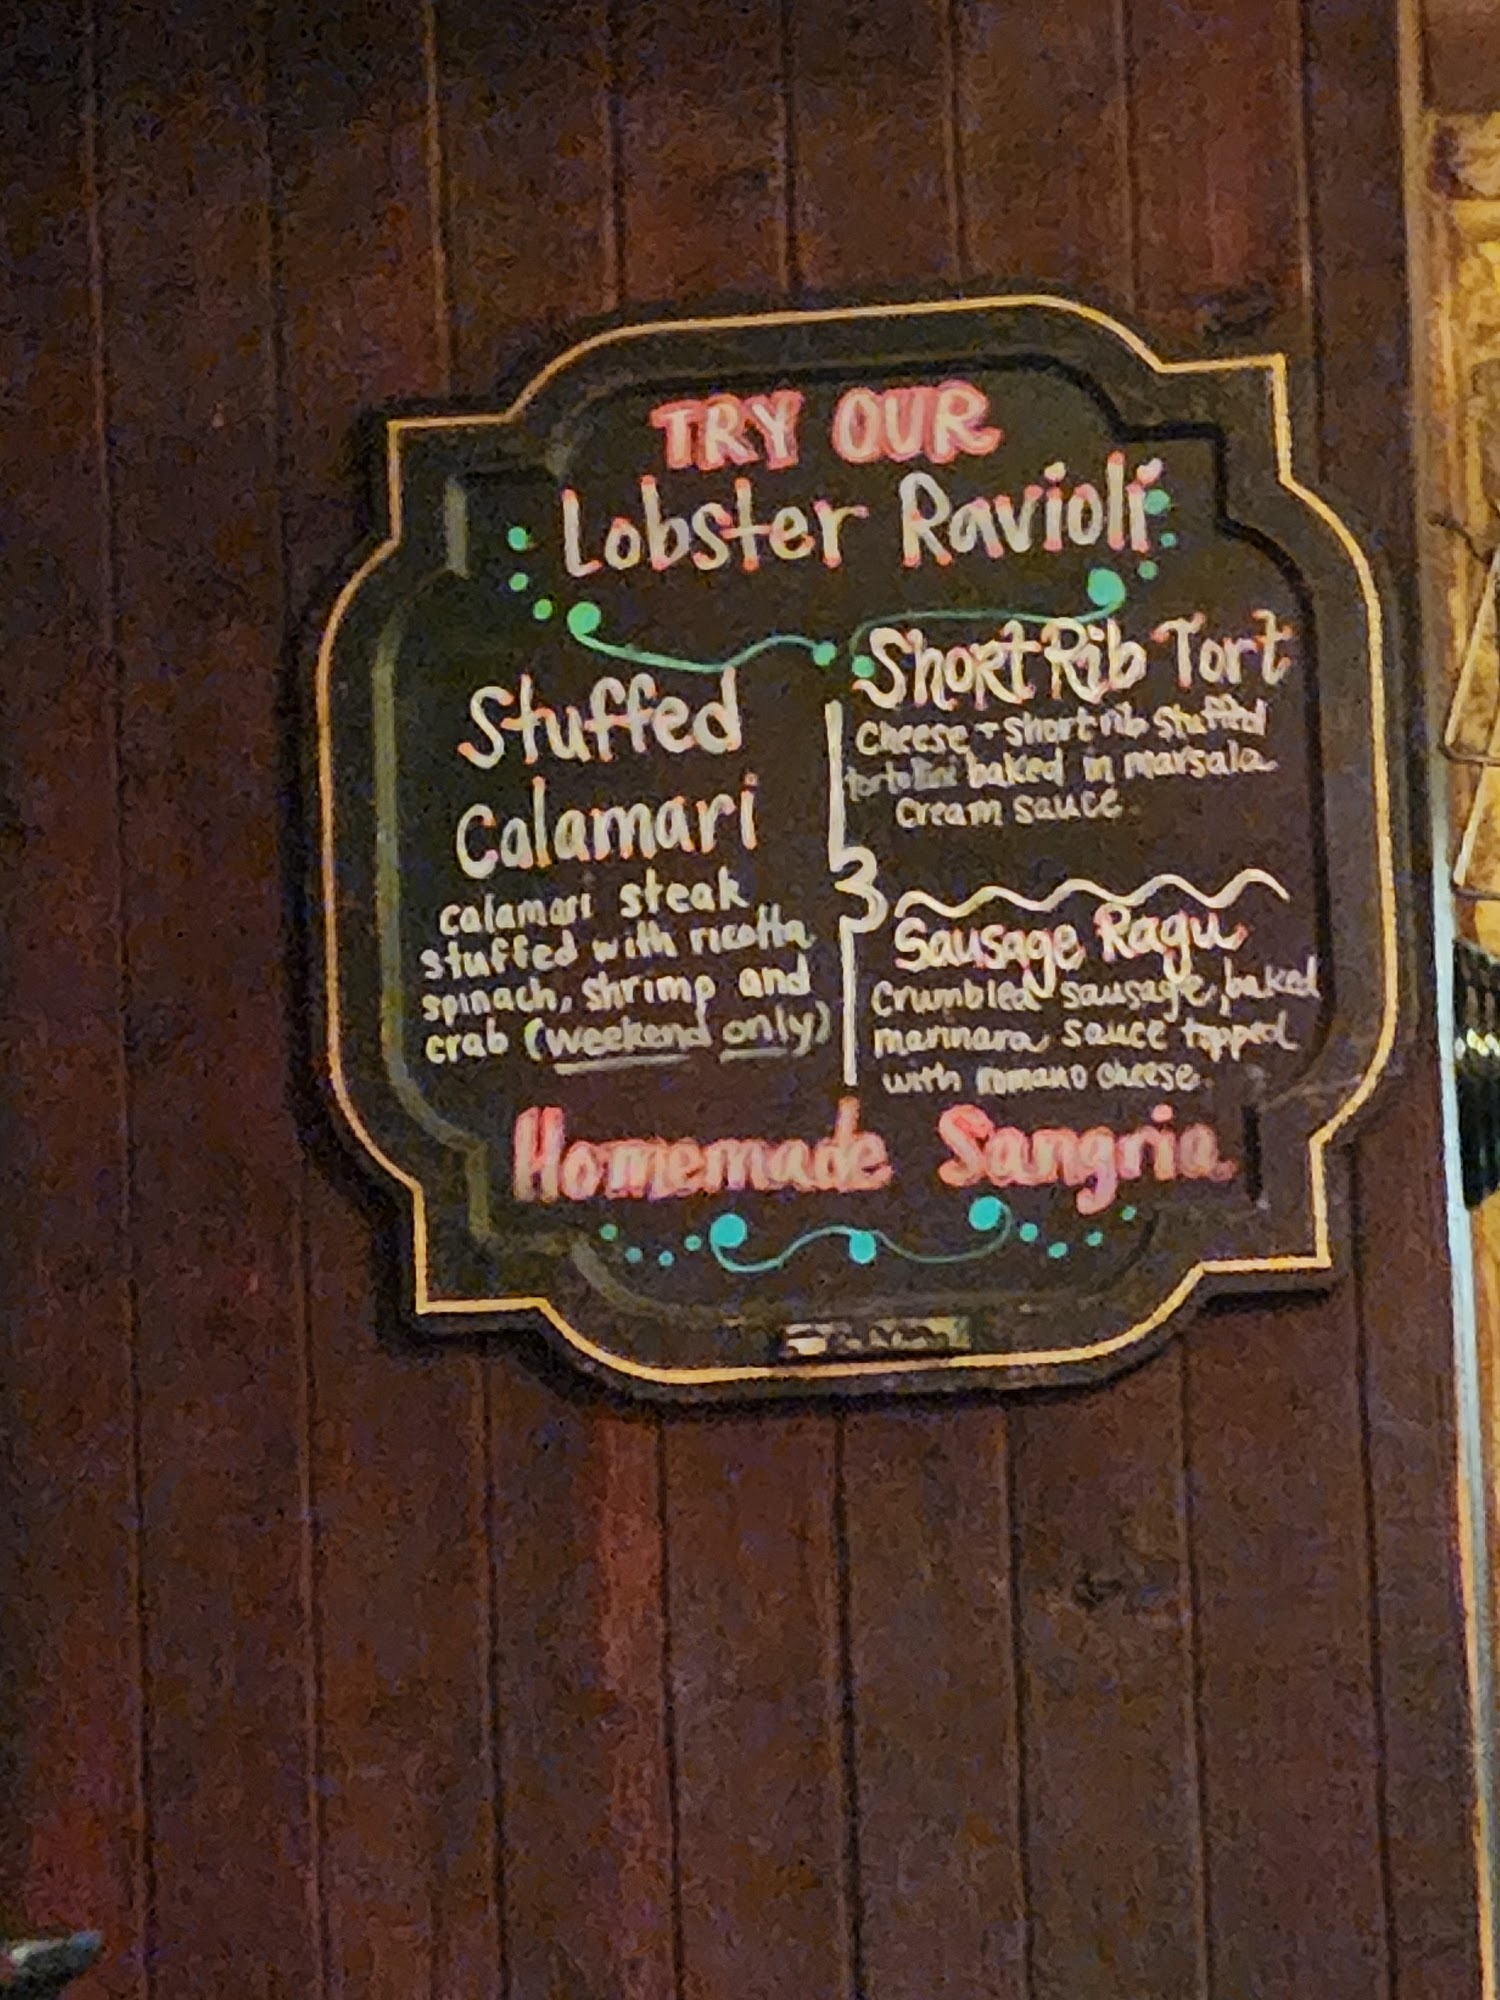 TRY OUR
Lobster Ravioli
Stuffed
Calamari
calamari steak
stuffed with ricotta
spinach, shrimp and
crab (weekend only)
Short Rib Tort
Cheese + short rib stuffed
tortolini baked in marsala
cream sauce
Sausage Ragu
Crumbled sausage, baked
marinara sauce topped
with romano cheese.
Homemade Sangria